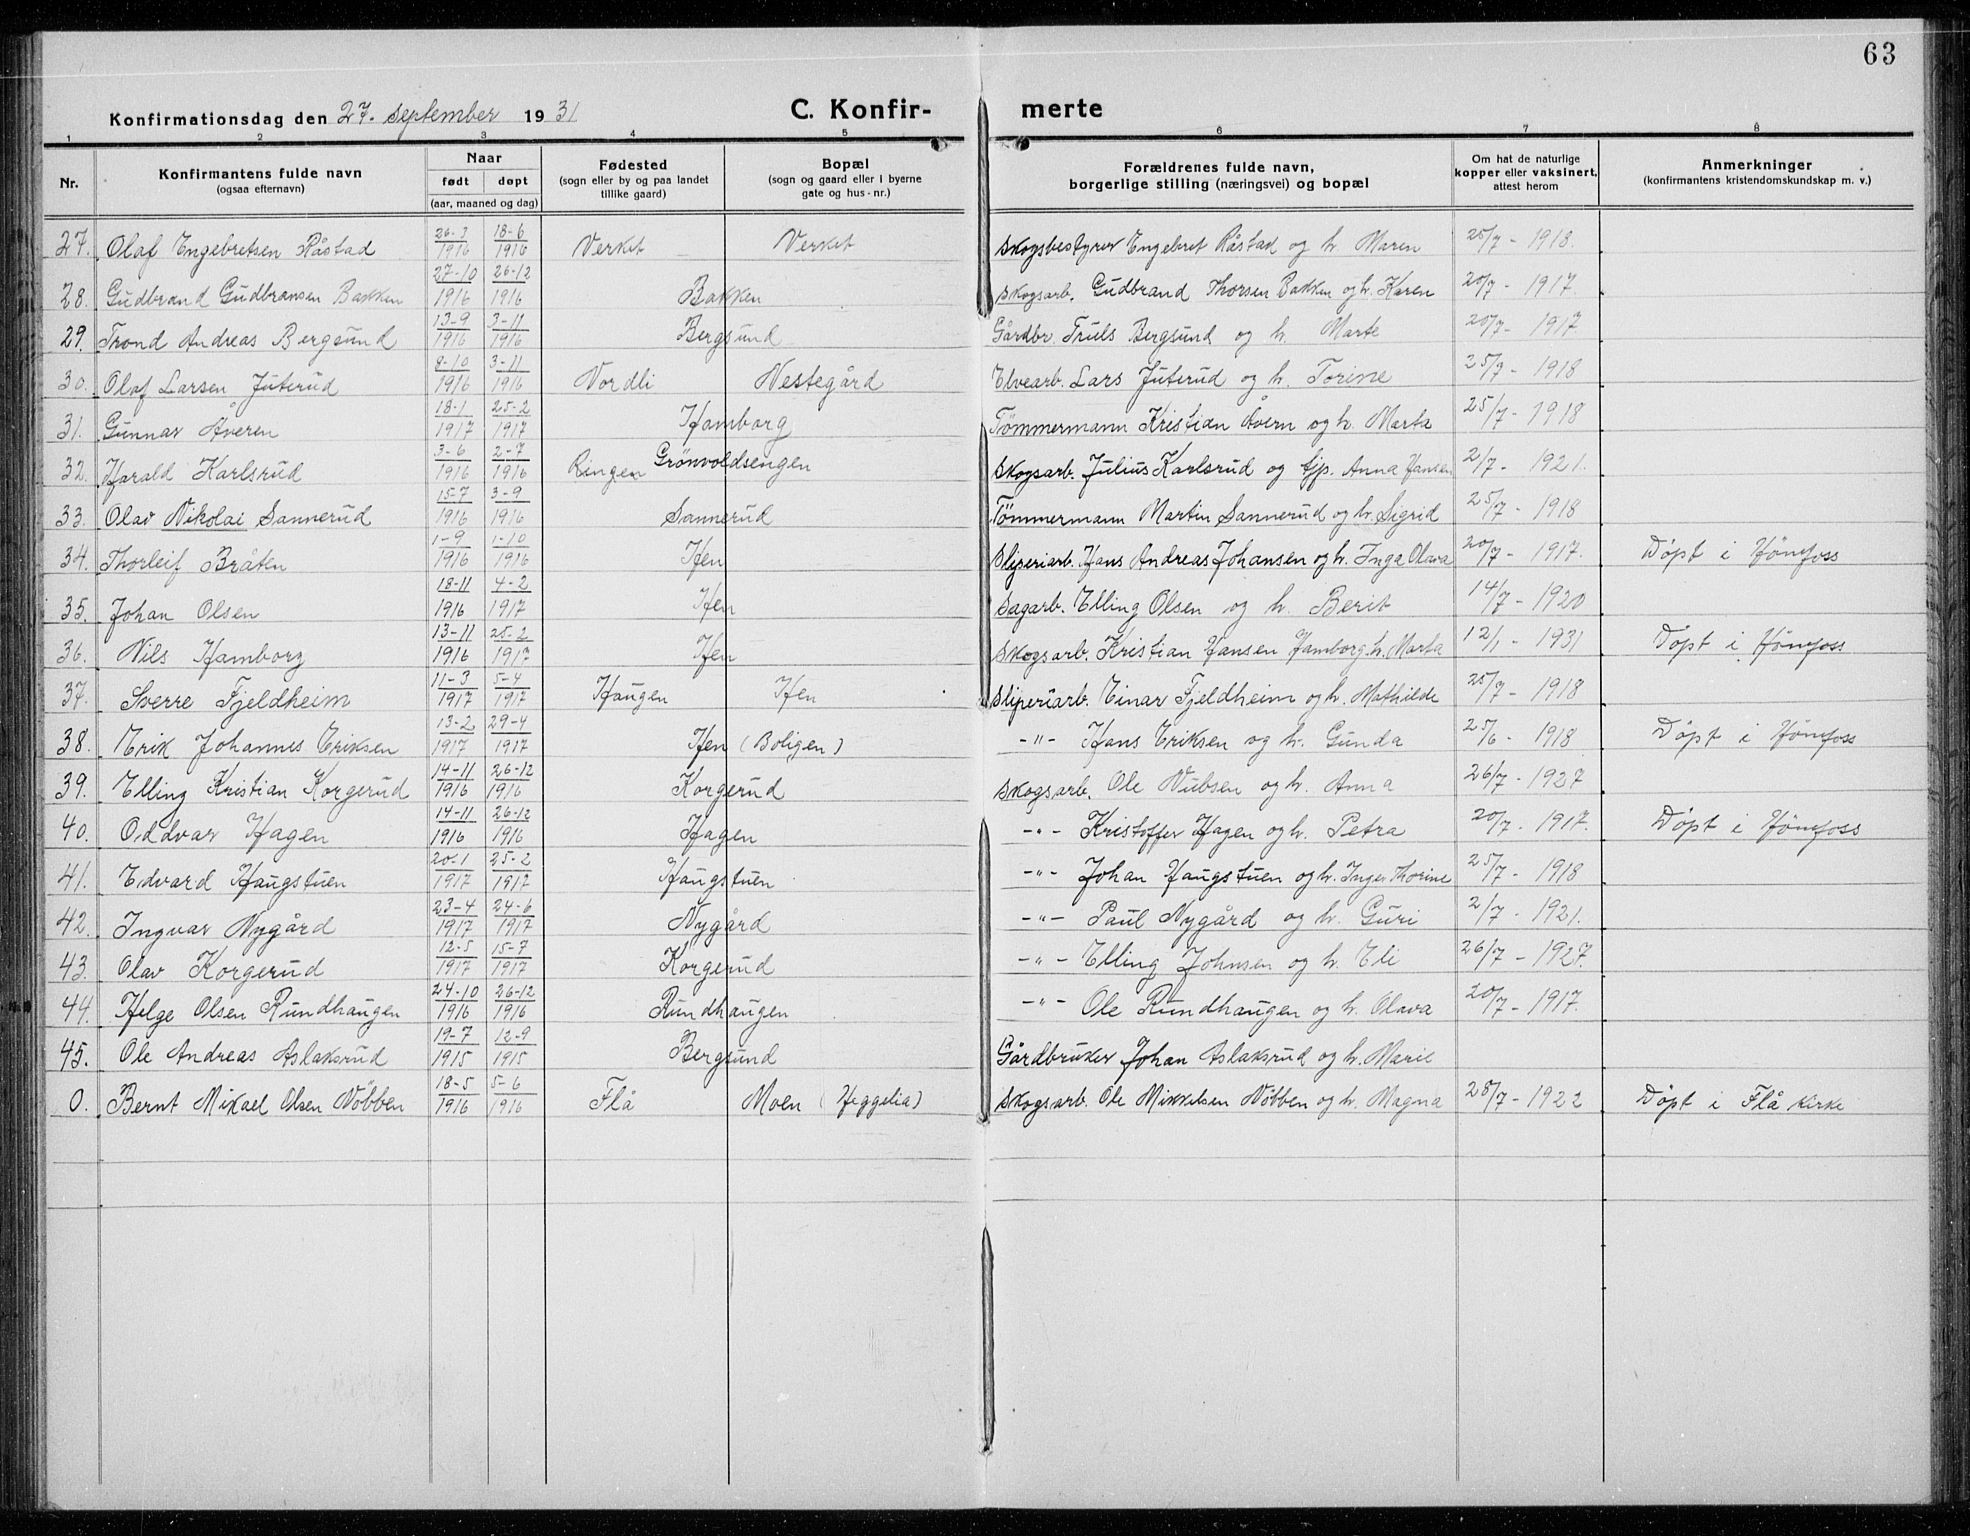 63
Konfirmationsdag den 27. september 1931
C. Konfirmerte
1 2 3 4 5 6 7 8
Nr.
Konfirmantens fulde navn
(ogsaa efternavn)
Naar
født døpt
(aar, maaned og dag)
Fødested
(sogn eller by og paa landet
tillike gaard)
Bopæl
(sogn og gaard eller i byerne
gate og hus-nr.)
Forældrenes fulde navn,
borgerlige stilling (næringsvei) og bopæl
Om hat de naturlige
kopper eller vaksinert,
attest herom
Anmerkninger
(konfirmantens kristendomskundskap m. v.)
27. Olaf Engebretsen Råstad 26-3 1916 18-6 1916 Verket Verket Skogsbestyrer Engebret Råstad og h. Maren 25/7 - 1918.
28. Gudbrand Gudbransen Bakken 27-10 1916 26-12 1916 Bakken Skogsarb. Gudbrand Thorsen Bakken og h. Karen 20/7 - 1917
29. Trond Andreas Bergsund 13-9 1916 3-11 1916 Bergsund Gårdbr. Truls Bergsund og h. Marte 20/7 - 1917
30. Olaf Larsen Juterud 8-10 1916 3-11 1916 Vordli Nestegård Elvearb. Lars Juterud og h. Torine 25/7 - 1918
31. Gunnar Åveren 18-1 1917 25-2 1917 Hamborg Tömmermann Kristian Åvern og h. Marta 25/7 - 1918
32. Harald Karlsrud 3-6 1916 2-7 1916 Ringen Grönvoldsengen Skogsarb. Julius Karlsrud og fjp. Anna Hansen 2/7 - 1921.
33. Olav Nikolai Sannerud 15-7 1916 3-9 1916 Sannerud Tömmermann Martin Sannerud og h. Sigrid 25/7 - 1918
34. Thorleif Bråten 1-9 1916 1-10 1916 Hen Sliperiarb. Hans Andreas Johansen og h. Inga Olava 20/7 - 1917. Döpt i Hönefoss
35. Johan Olsen 18-11 1916 4-2 1917 Hen Sagarb. Elling Olsen og h. Berit 14/7 - 1920
36. Nils Hamborg 13-11 1916 25-2 1917 Hen Skogsarb. Kristian Hansen Hamborg h. Marta 12/1 - 1931 Döpt i Hönefoss
37. Sverre Fjeldheim 11-3 1917 5-4 1917 Haugen Hen Sliperiarb. Einar Fjeldheim og h. Mathilde 25/7 - 1918
38. Erik Johannes Eriksen 13-2 1917 29-4 1917 Hen (Boligen) -"- Hans Eriksen og h. Gunda 25/6 - 1918 Döpt i Hönefoss
39. Elling Kristian Korgerud 14-11 1916 26-12 1916 Korgerud Skogsarb. Ole Nubsen og h. Anna 26/7 - 1927
40. Oddvar Hagen 14-11 1916 26-12 1916 Hagen -"- Kristoffer Hagen og h. Petra 20/7 - 1917. Döpt i Hönefoss
41. Edvard Haugstuen 20-1 1917 25-2 1917 Haugstuen -"- Johan Haugstuen og h. Inger Thorine 25/7 - 1918
42. Ingvar Nygård 23-4 1917 24-6 1917 Nygård -"- Paul Nygård og h. Guri 2/7 - 1921.
43. Olav Korgerud 12-5 1917 15-7 1917 Korgerud -"- Elling Johnsen og h. Eli 26/7 - 1927.
44. Helge Olsen Rundhaugen 24-10 1916 26-12 1916 Rundhaugen -"- Ole Rundhaugen og h. Olava 20/7 - 1917.
45. Ole Andreas Aslaksrud 19-7 1915 12-9 1915 Bergsund Gårdbruker Johan Aslaksrud og h. Marie
0. Bernt Mikael Olsen Nöbben 18-5 1916 5-6 1916 Flå Moen (Heggelia) Skogsarb. Ole Mikkelsen Nöbben og h. Magna 28/7 - 1922 Döpt i Flå kirke